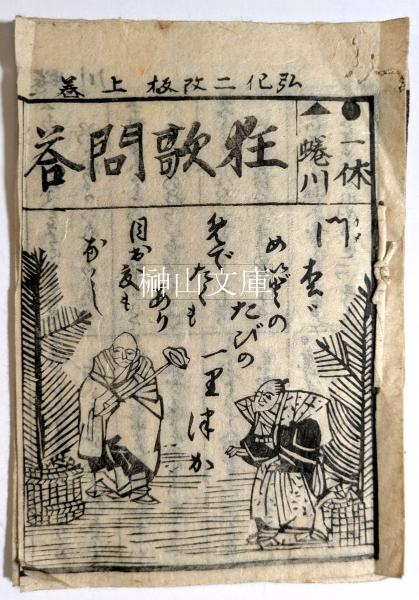 弘化二改板 上巻
●一休
▲蜷川
狂歌問答
門松ハ
めいどの
たびの
一里づか
めでたくも
あり
目出度も
なし
榊山文庫